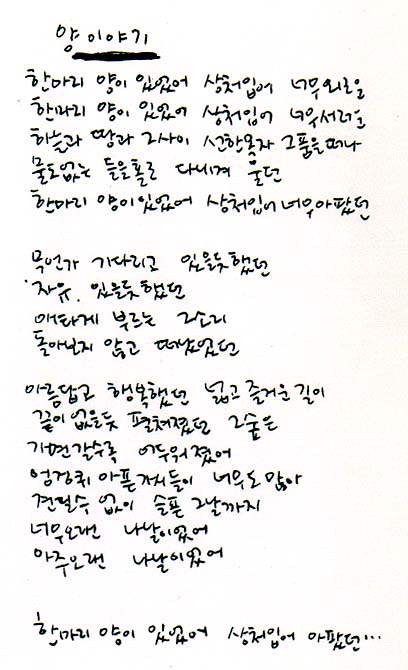 양 이야기
한마리 양이 있었어 상처입어 너무외로울
한마리 양이 있었어 상처입어 너무서러운
하늘과 땅과 그사이 선한목자 그품을떠나
물도없는 들을홀로 다니며 울던
한마리 양이있었어 상처입어너무아팠던
무언가 기다리고 있을듯했던
자유. 있을듯했던
애타게 부르는 그소리
돌아보지 않고 떠났었던
아름답고 행복했던 넓고 즐거운 길이
끝이 없을듯 펼쳐졌던 그숲은
가면갈수록 어두워졌어
엉겅퀴 아픈가시들이 너무도 많아
견딜수 없이 슬픈 그날까지
너무오랜 나날이었어
아주오랜 나날이었어
한마리 양이 있었어 상처입어 아팠던...